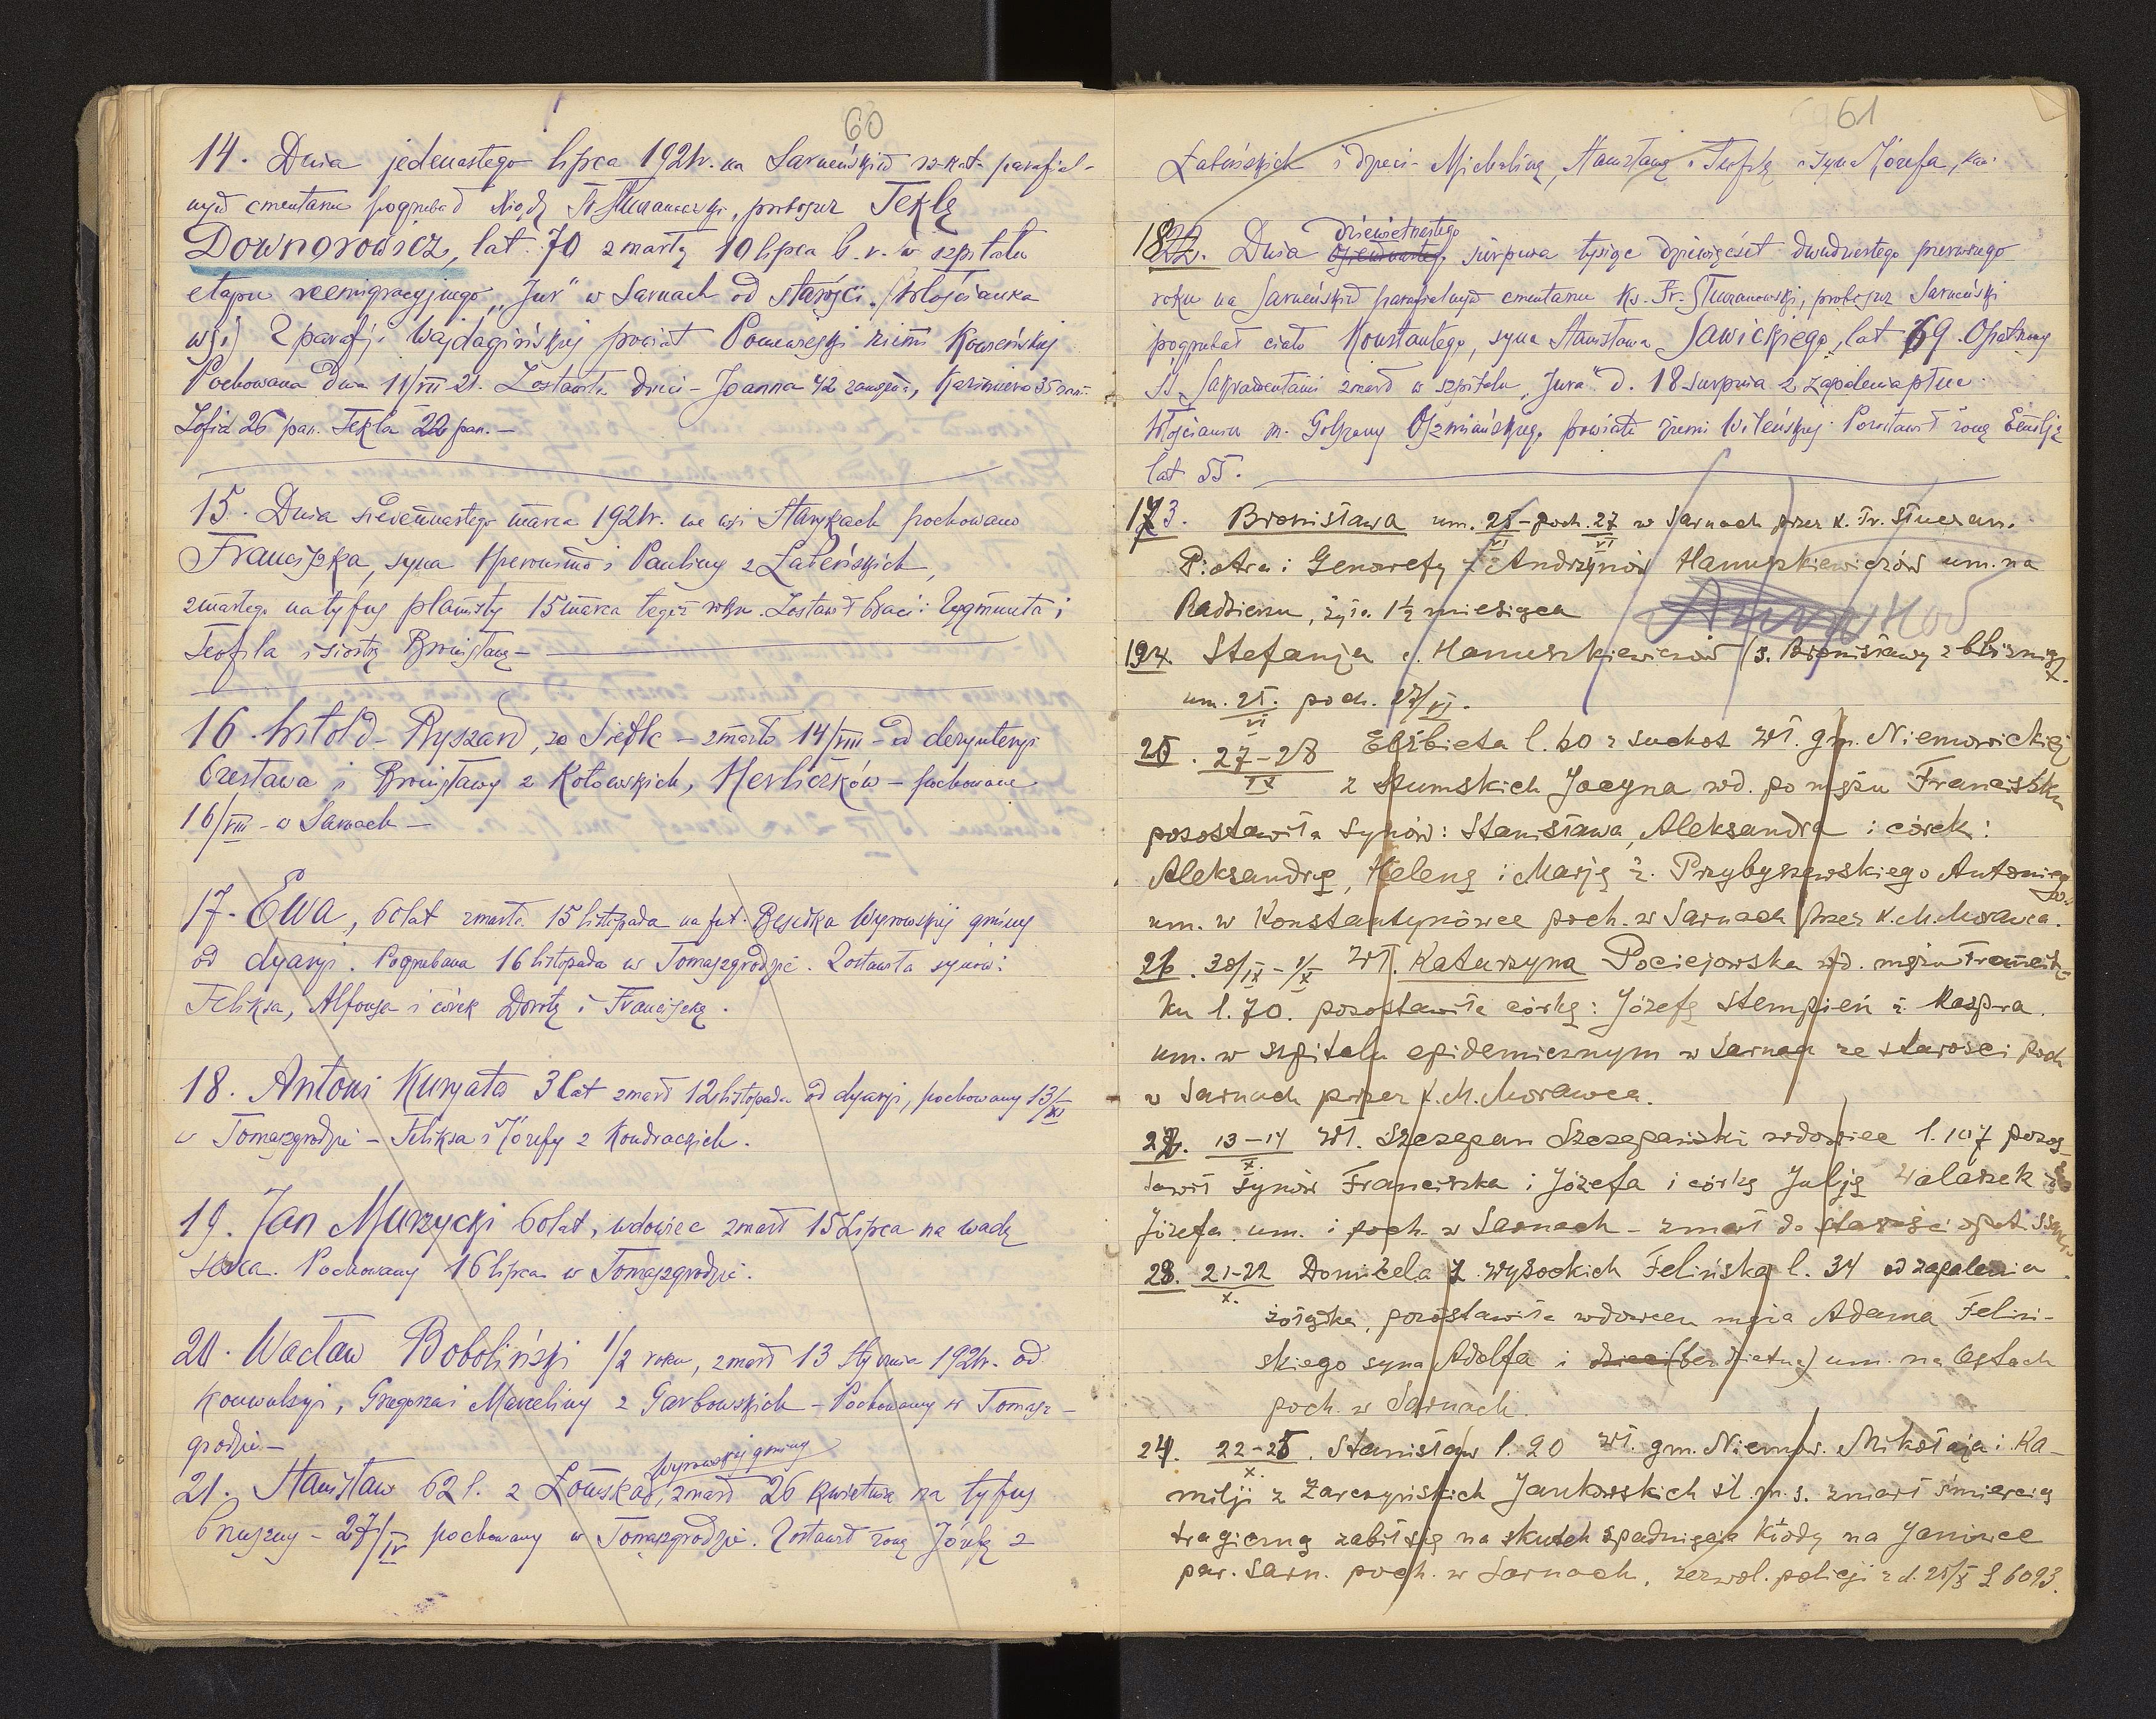 60
14. Dnia jedenastego lipca 1921r. na Sarneńskim rz-kat. parafial-
nym cmentarzu pogrzebał Ksiądz proboszcz Teklę
Downorowicz, lat 70 zmarłą 10 lipca b. r. w szpitalu
etapu reemigracyjnego „Jur" w Sarnach od starości. /Włościanka
wsi) z parafji powiat Poniewieski ziemi Kowieńskiej
Pochowana dnia 11/VII 21. Zostawiła dzieci - Joanna 42 Kazimiera 35
Zofia 26 pan. Tekla 22 pan. —
15. Dnia siedemnastego marca 1921r. we wsi Starykach pochowano
Franciszka, syna Hieronima i Pauliny z Łateńskich,
zmarłego na tyfus plamisty 15 marca tegoż roku. Zostawił braci: Zygmunta i
Teofila i siostrę Bronisławę —
16. Witold - Ryszard, ze Siedlc - zmarło 14/VIII - od dezynterji
Czesława i Bronisławy z Kotowskich, Herliczków - pochowane
16/VIII - w Sarnach —
17. Ewa, 60 lat zmarła 15 listopada na fut. Wyrowskiej gminy
od dyarji. Pogrzebana 16 listopada w Tomaszgrodzie. Zostawiła synów:
Feliksa, Alfonsa i córek Dorotę i Franciszkę.
18. Antoni Kuryata 3 lat zmarł 12 listopada od dyarji, pochowany 13/XI
w Tomaszgrodzie - Feliksa i Józefy z Kondrackich.
19. Jan Murzycki 60 lat, wdowiec zmarł 15 Lipca na wadę
serca. Pochowany 16 lipca w Tomaszgrodzie.
20. Wacław Boboliński 1/2 roku, zmarł 13 stycznia 1921r. od
konwulsyi, Grzegorza i Marceliny z Garbowskich - Pochowany w Tomasz-
grodzie —
wyrowskiej gminy
21. Stanisław 62 l. z zmarł 26 kwietnia na tyfus
brzuszny - 27/IV pochowany w Tomaszgrodzie. Zostawił żonę Józefę z
61
Łateńskich i dzieci - Michalinę, Stanisławę i Teofilę i syna Józefa,
dziewiętnastego
22. Dnia sierpnia tysiąc dziewięćset dwudziestego pierwszego
roku na Sarneńskim parafialnym cmentarzu Ks. Fr. proboszcz Sarneński
pogrzebał ciało Konstantego, syna Stanisława Sawickiego, lat 69. Opatrzony
Śś. Sakramentami zmarł w szpitalu „Jura" d. 18 sierpnia z zapalenia płuc.
Włościanin m. Golszany Oszmiańskiego powiatu ziemi Wileńskiej. Pozostawił żonę Emilję
lat 55.
Bronisława um. 25 - poch. 27 w Sarnach przez k. Fr.
VI VI
Piotra i Genowefy z Andrzynów Hanuszkiewiczów um. na
żyła 1½ miesiąca
Stefanja c. Hanuszkiewiczów (s. Bronisławy z bliźniąt
um. 25. poch. 27/VI.
VI
25. 27-28 Elżbieta l. 60 z suchot wł. gm. Niemowickiej
IX z Szumskich Jacyna wd. po mężu Franciszku
pozostawiła synów: Stanisława, Aleksandra i córek:
Aleksandrę, Helenę i Marję ż. Przybyszewskiego Antoniego
um. w Konstantynówce poch. w Sarnach przez k. M. Morawca.
26. 30/IX - 1/X wł. Katarzyna Pociejowska wd. mężu Francisz-
ku l. 70. pozostawiła córkę: Józefę Stempień ż. Kaspra.
um. w szpitalu epidemicznym w Sarnach ze starości poch.
w Sarnach przez k. M. Morawca.
13-14 wł. Szczepan Szczepański wdowiec l. 107 pozos-
X.
tawił synów Franciszka i Józefa i córkę Julję Walaszek
Józefa. um. i poch. w Sarnach - zmarł
28. 21-22 Domicela z Wysockich Felińska l. 34 od zapalenia
X.
żołądka, pozostawiła wdowcem męża Adama Feliń-
skiego syna Adolfa i dzieci (bezdzietna) um. na
poch. w Sarnach.
24. 22-25. Stanisław l. 20 wł. gm. Niemow. Mikołaja i Ka-
X.
milji z Zarczyńskich Jankowskich śl. m. s. zmarł śmiercią
tragiczną zabił się na skutek spadnięcia kłody na Janówce
par. Sarn. poch. w Sarnach, zezwol. policji z d. 25/X L 6093.